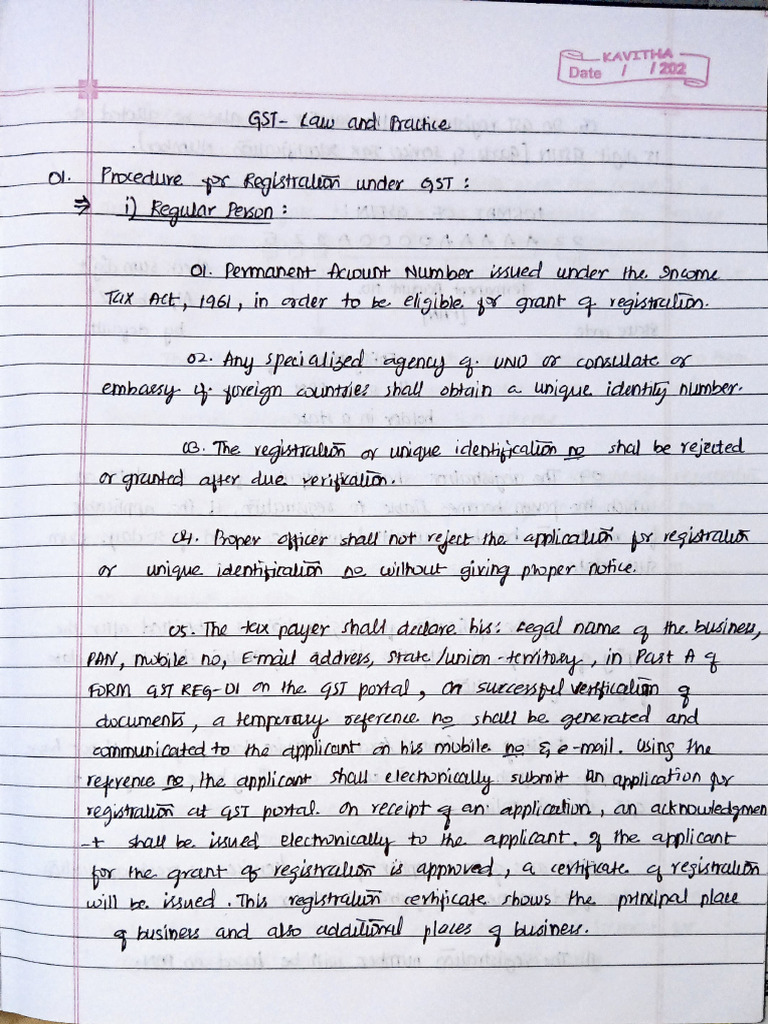 KAVITHA
Date / /202
GST- Law and Practice
01. Procedure for Registration under GST :
⇒ i) Regular Person :
01. Permanent Account Number issued under the Income
Tax Act, 1961, in order to be eligible for grant of registration.
02. Any specialized agency of UNO or consulate or
embassy of foreign countries shall obtain a unique identity number.
03. The registration or unique identification no shal be rejected
or granted after due verification.
04. Proper officer shall not reject the application for registration
or unique identification no without giving proper notice.
05. The tax payer shall declare his: Legal name of the business,
PAN, mobile no, E-mail address, state/union-territory, in Part A of
FORM GST REG-01 on the GST portal, on successful verification of
documents, a temporary reference no shall be generated and
communicated to the applicant on his mobile no & e-mail. Using the
reference no, the applicant shall electronically submit an application for
registration at GST portal. On receipt of an application, an acknowledgmen
-t shall be issued electronically to the applicant. If the applicant
for the grant of registration is approved, a certificate of registration
will be issued. This registration certificate shows the principal place
of business and also additional places of business.